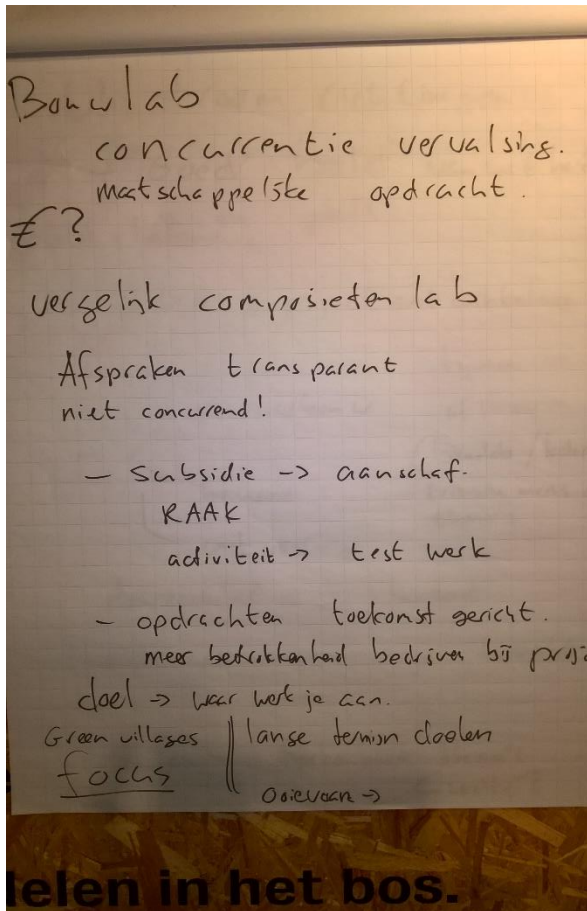 Bouwlab
concurrentie vervalsing.
maatschappelijke opdracht.
€?
vergelijk composieten lab
Afspraken transparant
niet concurrend!
- Subsidie -> aanschaf.
RAAK
activiteit -> test werk
- opdrachten toekomst gericht.
meer betrokkenheid bedrijven bij proj
doel -> waar werk je aan.
Green villages || lange termijn doelen
focus
Ooievaar ->
delen in het bos.